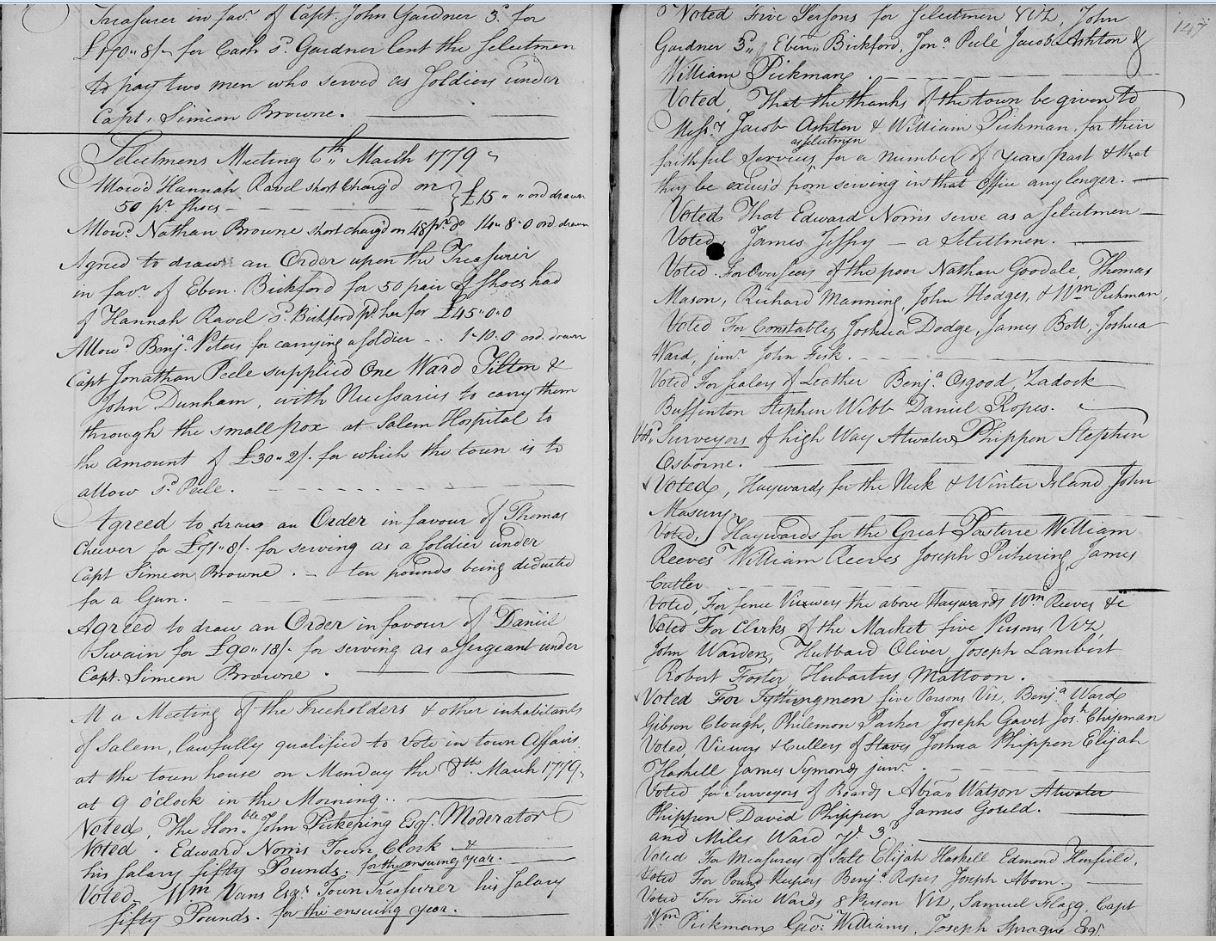 Treasurer in fav.r of Capt. John Gardner 3.d for
£170.. 8/- for Cash s.d Gardner lent the Selectmen
to pay two men who served as Soldiers under
Capt. Simeon Browne.
Selectmens Meeting 6.th March 1779
Allow'd Hannah Ravel short Charg'd on } £15 " " ord drawn
50 p.r Shoes
Allow.d Nathan Browne short charg'd on 48 p.r d.o 14.. 8. 0 ord drawn
Agreed to draw an Order upon the Treasurer
in fav.r of Eben. Bickford for 50 pair of Shoes had
of Hannah Ravel s.d Bickford p.d her for £45.. 0.. 0
Allow.d Benj.a Peters for carrying a Soldier .. 1. 10. 0 ord. drawn
Capt Jonathan Peele supplied One Ward Tilton &
John Dunham, with Necessaries to carry them
through the small pox at Salem Hospital to
the amount of £30.. 2/- for which the town is to
allow s.d Peele.
Agreed to draw an Order in favour of Thomas
Cheever for £71.. 8/- for serving as a Soldier under
Capt Simeon Browne. — ten pounds being deducted
for a Gun.
Agreed to draw an Order in favour of Daniel
Swain for £90.. 18/- for serving as a Sergeant under
Capt. Simeon Browne.
At a Meeting of the Freeholders & other inhabitants
of Salem, lawfully qualified to Vote in town Affairs
at the town house on Monday the 8.th March 1779,
at 9 o'Clock in the Morning..
Voted, The Hon.ble John Pickering Esq.r Moderator
Voted. Edward Norris Town Clerk &
his Salary fifty Pounds. for the ensuing year.
Voted, Wm Vans Esq.r Town Treasurer his Salary
fifty Pounds. for the ensuing year.
147
Voted Five Persons for Selectmen Viz, John
Gardner 3.d, Eben.r Bickford, Jon.a Peele Jacob Ashton &
William Pickman.
Voted, That the thanks of the town be given to
Mess.rs Jacob Ashton & William Pickman, for their
as Selectmen
faithful Services for a number of Years past & that
they be excus'd from serving in that Office any longer. —
Voted That Edward Norris serve as a Selectmen —
Voted, James Jeffry — a Selectmen.
Voted. For Overseers of the poor Nathan Goodale, Thomas
Mason, Richard Manning, John Hodges, & Wm Pickman,
Voted For Constables Joshua Dodge, James Bott, Joshua
Ward, jun.r John Fisk.
Voted For sealers of Leather Benj.a Osgood, Zadock
Buffinton Stephen Webb Daniel Ropes.
Surveyors of high Way Atwater Phippen Stephen
Osborne.
Voted, Haywards for the Neck & Winter Island John
Masury.
Voted, Haywards for the Great Pasture William
Reeves William Reeves Joseph Pickering James
Cutler
Voted, For fence Viewers the above Haywards Wm Reeves &c
Voted For Clerks of the Market five Persons Viz,
John Warden, Hubbard Oliver Joseph Lambert
Robert Foster Hubartus Mattoon.
Voted For Tythingmen five Persons Viz, Benj.a Ward
Gibson Clough, Philemon Parker Joseph Gavet Jos.h Chipman
Voted Viewers & Cullers of Staves Joshua Phippen Elijah
Haskell James Symonds jun.r
Voted for Surveyors of Boards Abra.m Watson Atwater
Phippen David Phippen James Gould.
and Miles Ward 3.d
Voted For Measurers of Salt Elijah Haskell Edmond Henfield,
Voted For Pound Keepers Benj.a Ropes Joseph Aborn.
Voted For Fire Wards 8 Person Viz, Samuel Flagg, Capt
Wm Pickman Geo.r Williams, Joseph Sprague Esq.r